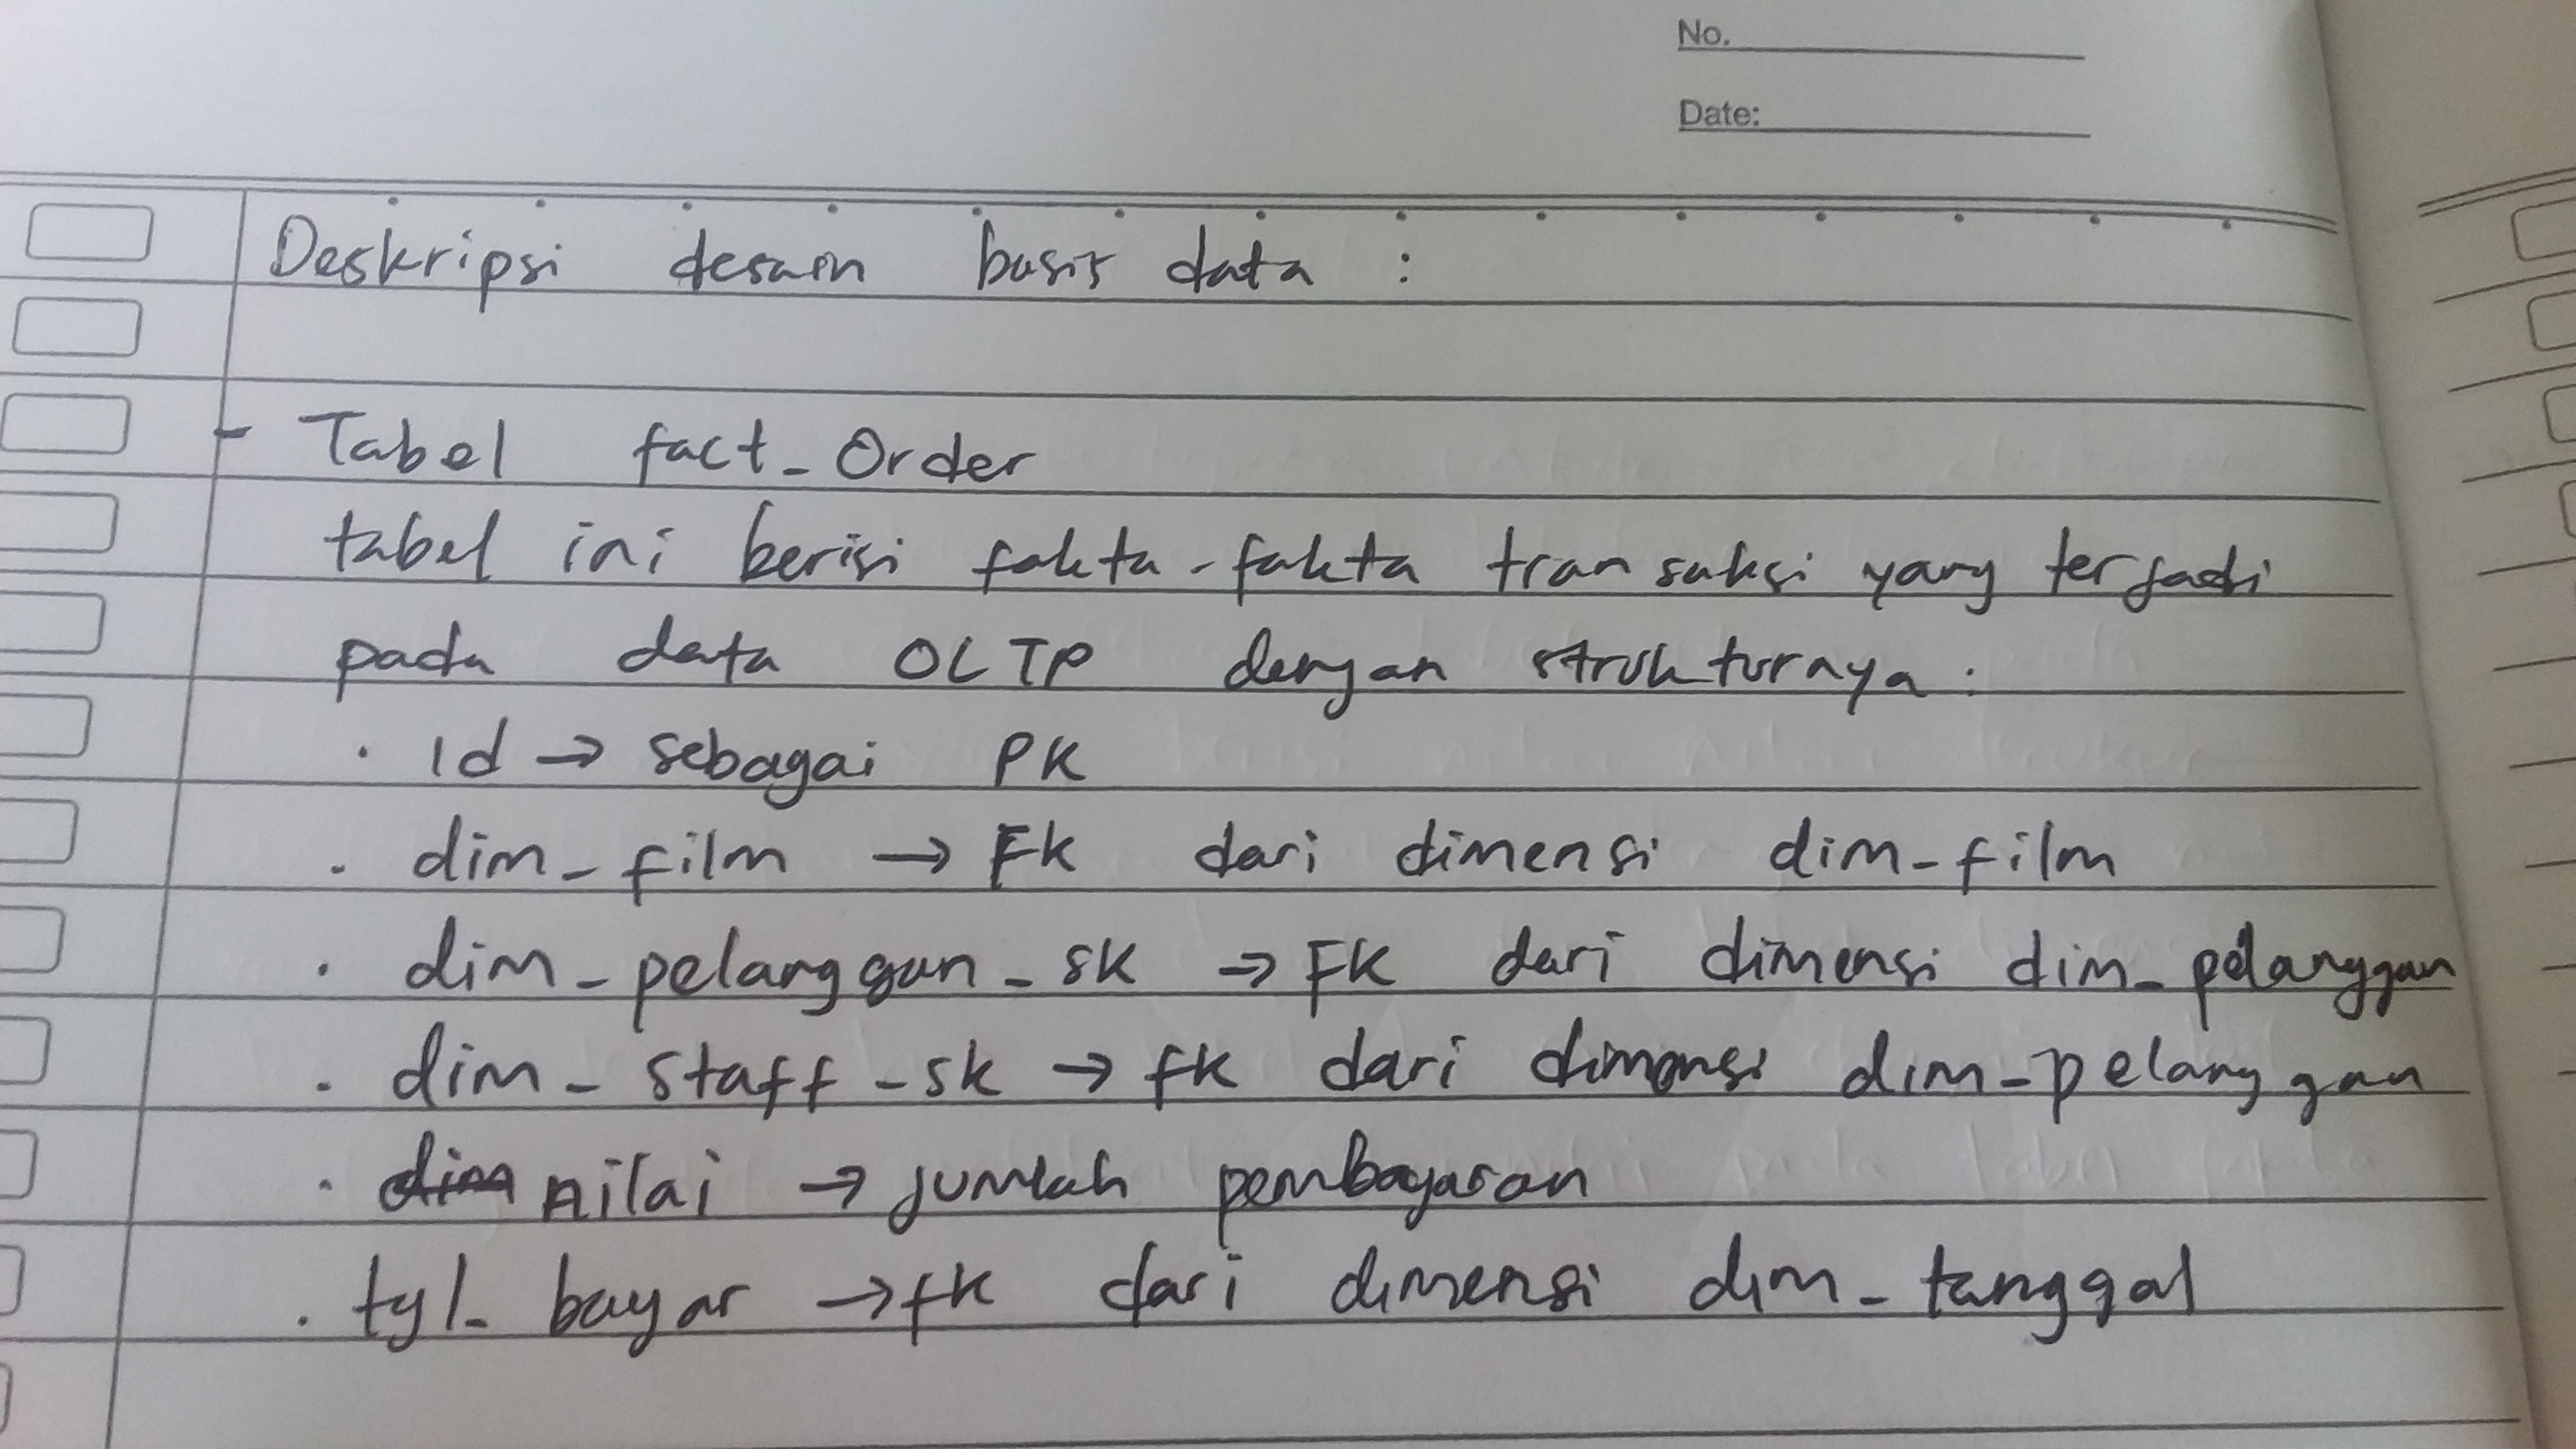 No.
Date:
Deskripsi desain basis data :
- Tabel fact_Order
tabel ini berisi fakta-fakta transaksi yang terjadi
pada data OLTP dengan strukturnya :
· Id → sebagai PK
· dim_film → FK dari dimensi dim_film
· dim_pelanggan_sk → FK dari dimensi dim_pelanggan
· dim_staff_sk → fk dari dimensi dim_pelanggan
· dim nilai → jumlah pembayaran
· tgl_bayar → fk dari dimensi dim_tanggal